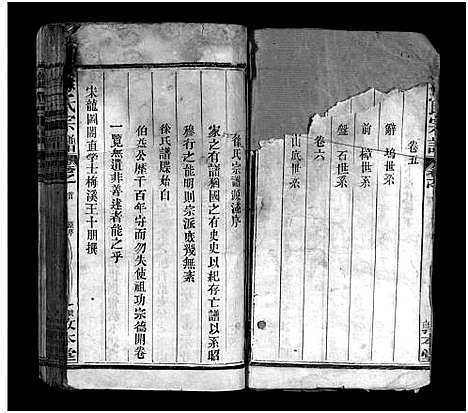 卷五
辭塢世系
前樟世系
盤石世系
卷六
山底世系
徐氏宗譜源流序
家之有譜猶國之有史史以紀存亡譜以系昭
穆有之能明則宗派庶幾無紊
徐氏譜牒始自
伯益公歷千百年守而勿失使祖功宗德開卷
一覽無遺非善述者能之乎
宋龍圖閣直學士梅溪王十朋撰
氏宗譜
敦本堂